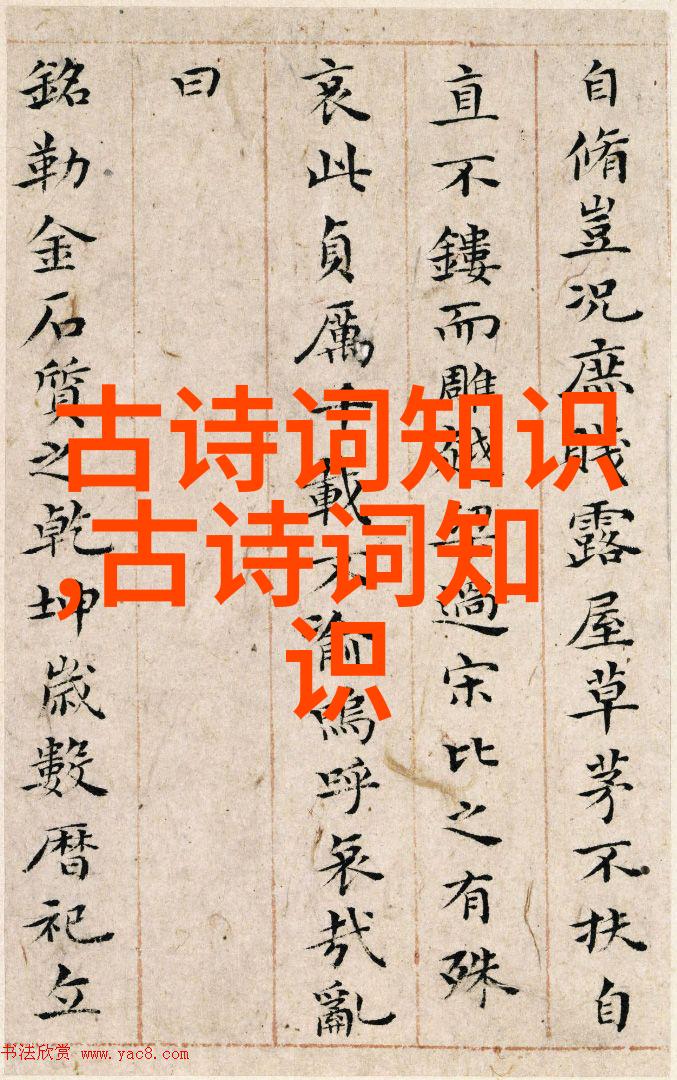 自脩豈況庶賤露屋草茅不扶自
直不鏤而雕越梁過宋比之有殊
哀此貞厲千載不渝嗚呼哀哉亂
曰
銘勒金石質之乾坤歲數暦祀立
古诗词知识
,古诗词知
识
书法欣赏 www.yac8.com